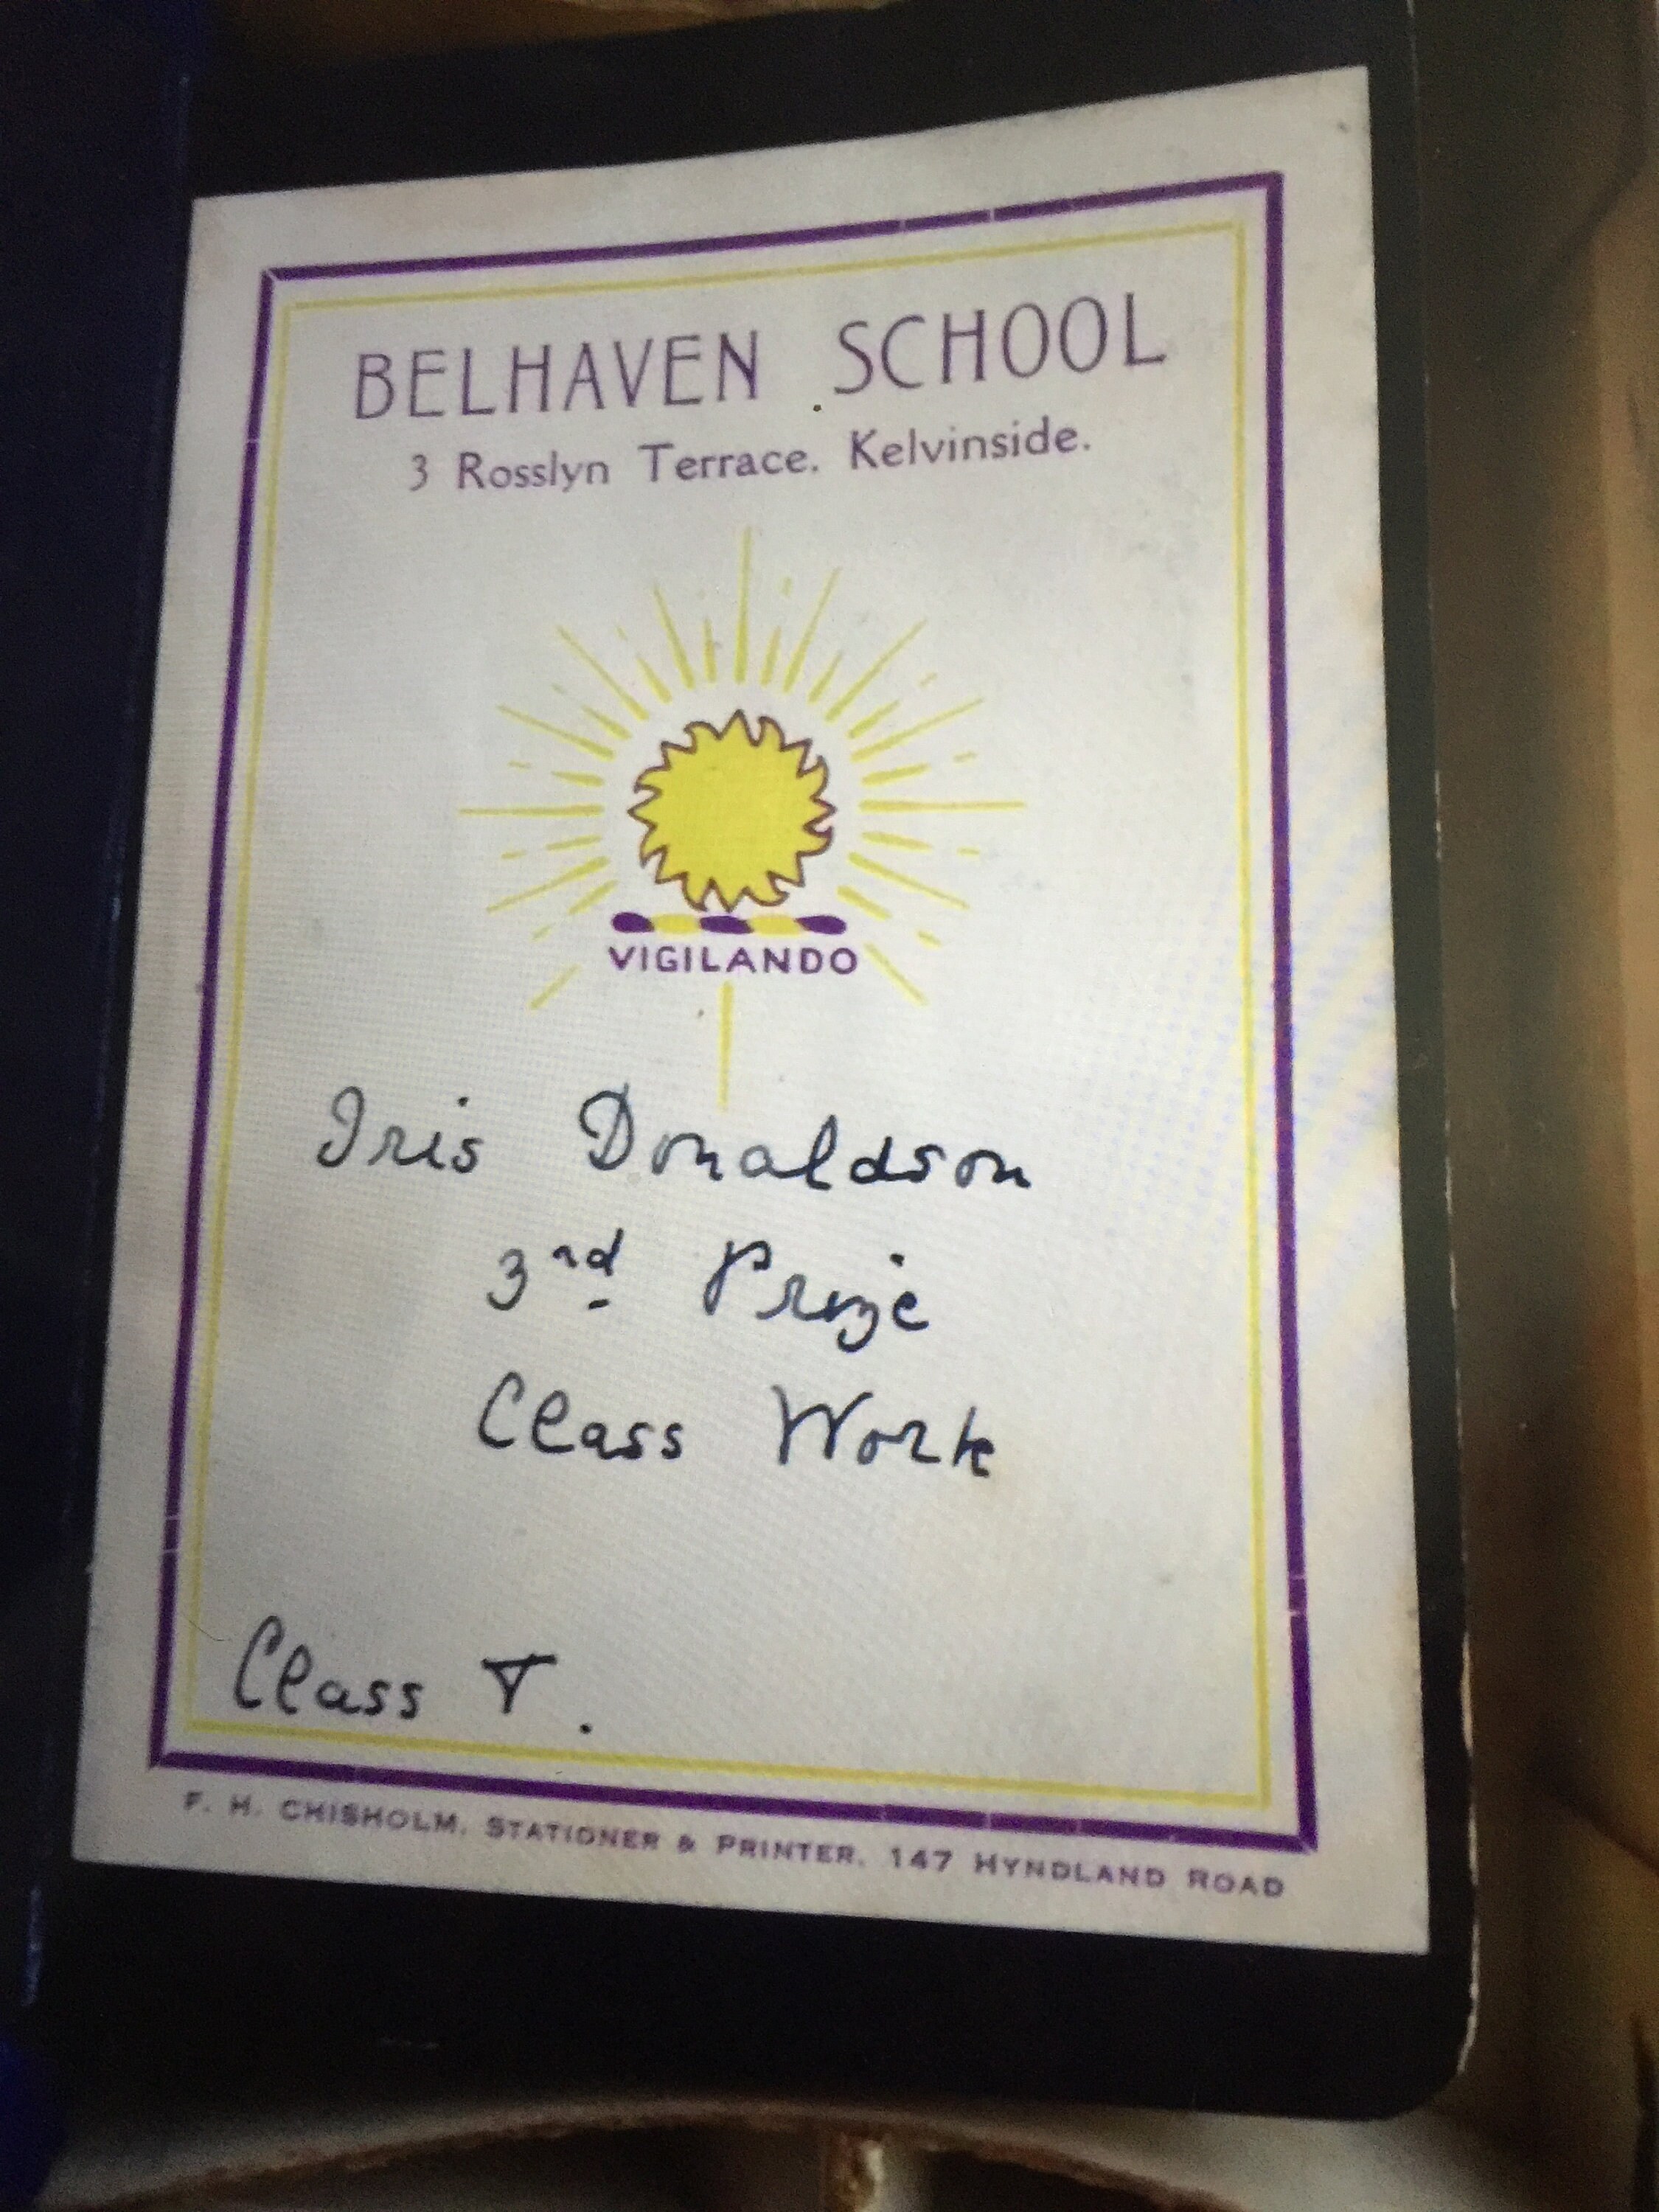 BELHAVEN SCHOOL
3 Rosslyn Terrace, Kelvinside.
VIGILANDO
Iris Donaldson
3rd Prize
Class Work
Class V.
F. H. CHISHOLM, STATIONER & PRINTER, 147 HYNDLAND ROAD